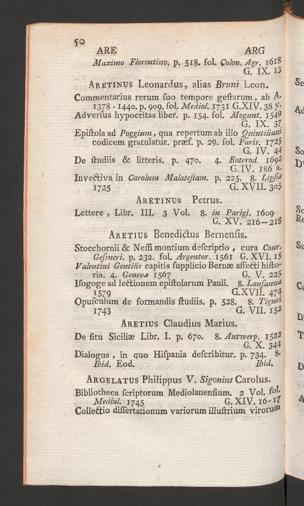 50
ARE ARG
Maximo Florentino. p. 518. fol. Colon. Agr. 1618
G. IX. 13
ARETINUS Leonardus, alias Bruni Leon.
Commentarius rerum suo tempore gestarum, ab A.
1378-1440. p. 909. fol. Mediol. 1731 G.XIV. 38 y.
Adversus hypocritas liber. p. 154. fol. Mogunt. 1549
G. IX. 37
Epistola ad Poggium, qua repertum ab illo Quintiliani
codicem gratulatur. præf. p. 29. fol. Paris. 1725
G. IV. 44
De studiis & litteris. p. 470. 4. Roterod. 1692
G. IV. 186 a.
Invectiva in Carolum Malatestam. p. 225. 8. Lipsiæ
1725 G. XVII. 305
ARETINUS Petrus.
Lettere, Libr. III. 3 Vol. 8. in Parigi. 1609
G. XV. 216-218
ARETIUS Benedictus Bernensis.
Stocchornii & Nessi montium descriptio, cura Conr.
Gesneri. p. 232. fol. Argentor. 1561 G. XVI. 15
Valentini Gentilis capitis supplicio Bernæ affecti histo-
ria. 4. Genevæ 1567 G. V. 225
Isogoge ad lectionem epistolarum Pauli. 8. Lausannæ
1579 G.XVII. 474
Opusculum de formandis studiis. p. 528. 8. Tiguri
1743 G. VII. 152
ARETIUS Claudius Marius.
De situ Siciliæ Libr. I. p. 670. 8. Antwerp. 1522
G. X. 344
Dialogus, in quo Hispania describitur. p. 734. 8.
Ibid. Eod. Ibid.
ARGELATUS Philippus V. Sigonius Carolus.
Bibliotheca scriptorum Mediolanensium. 2 Vol. fol.
Mediol. 1745 G. XIV. 16-17
Collectio dissertationum variorum illustrium virorum